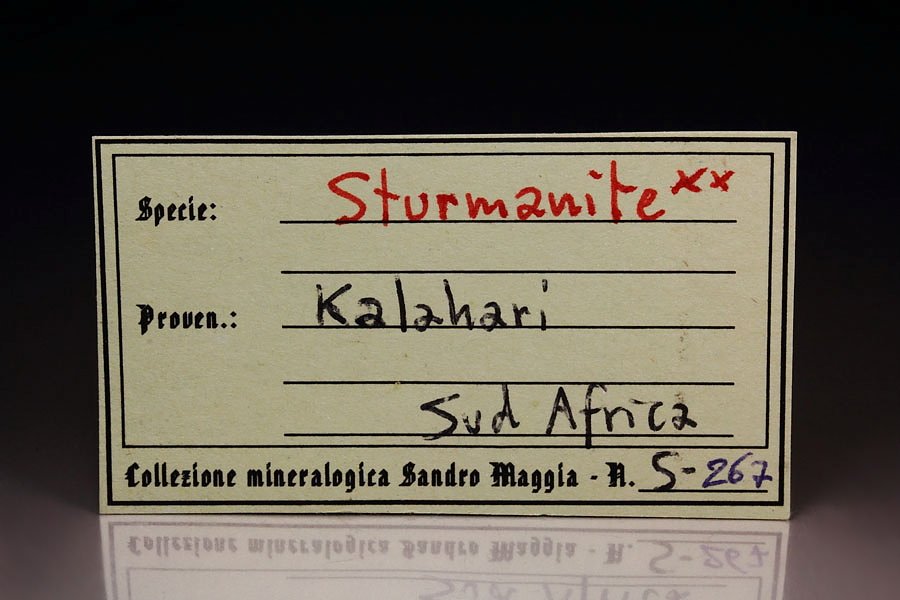 Specie: Sturmanite xx
Proven.: Kalahari
Sud Africa
Collezione mineralogica Sandro Maggia - N. S-267